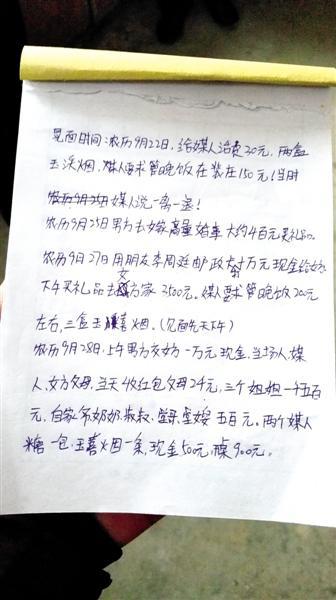 见面时间:农历9月22日,给媒人话费30元,两盒
玉溪烟,媒人要求管晚饭在 在150元(当时
媒人说一离一退!
农历9月25日男方去女家商量婚事大约4百元买礼品。
农历9月27日用朋友李周廷邮政 十万元现金给女方
下午买礼品去女方家3500元。媒人要求管晚饭200元
左右,三盒玉喜烟。(见面先天下午)
农历9月28日,上午男方交女方一万元现金,当场人,媒
人,女方父母,当天4收红包父母24元,三个姐姐一千五百
元,自家爷奶奶,叔叔, 五百元。两个媒人
糖一包,玉喜烟一条,现金50元, 900元。